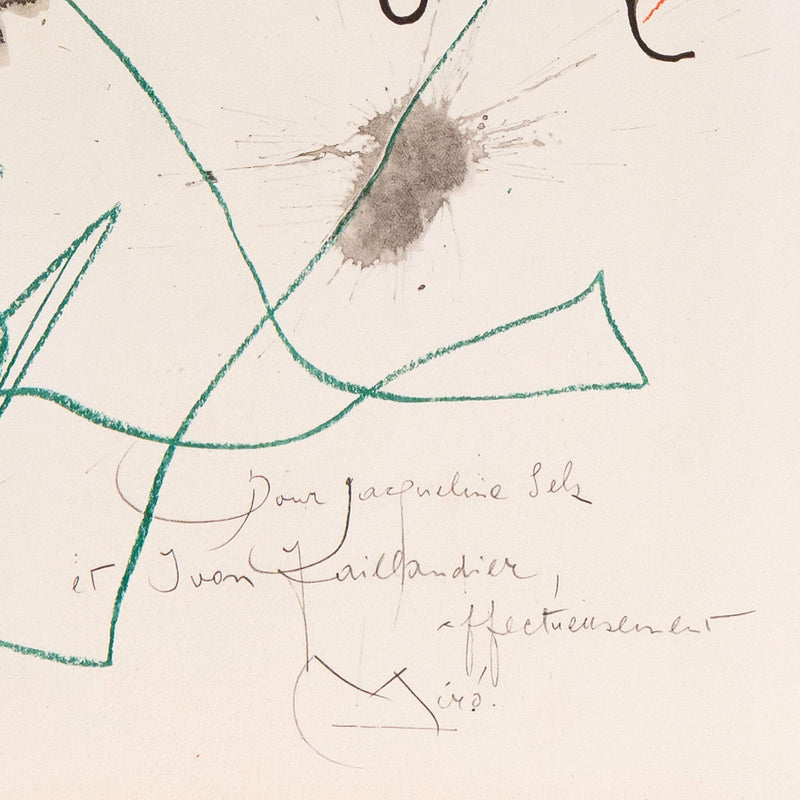 Pour Jacqueline Selz
et Ivon Taillandier,
affectueusement
Miró.